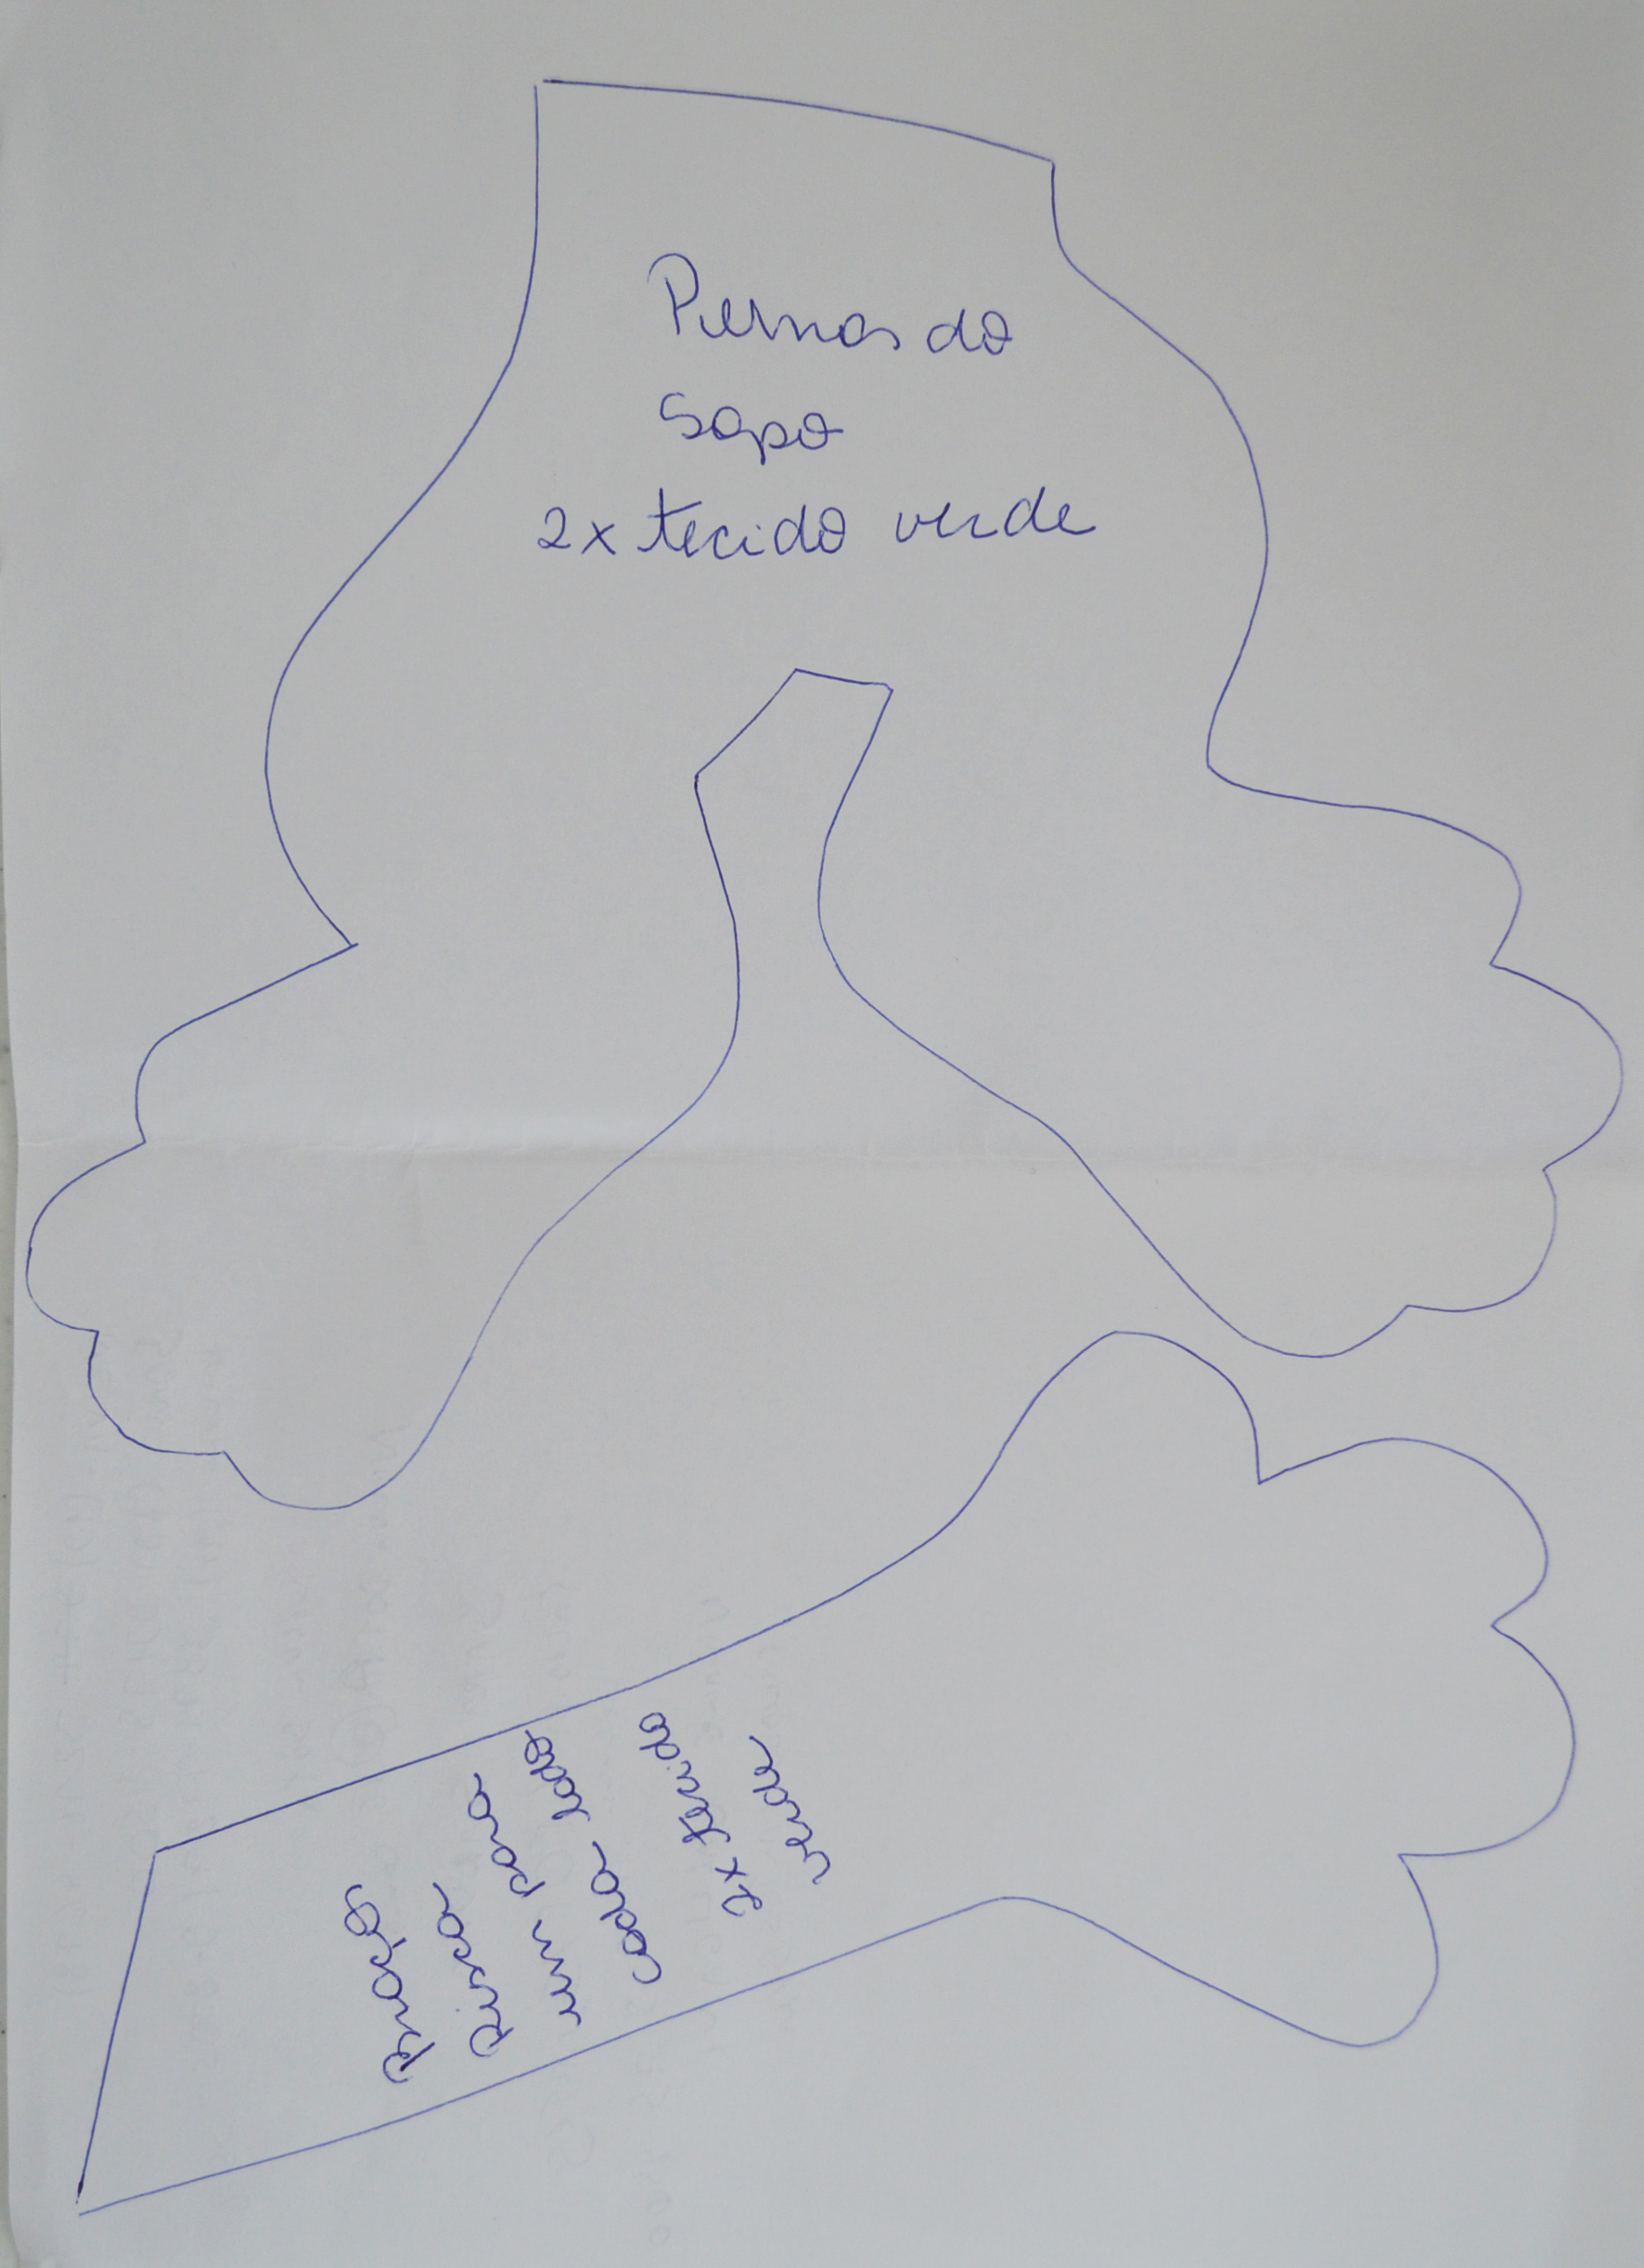 Pernas do
sapo
2x tecido verde
Braço
Risca
um para
cada lado
2x tecido
verde